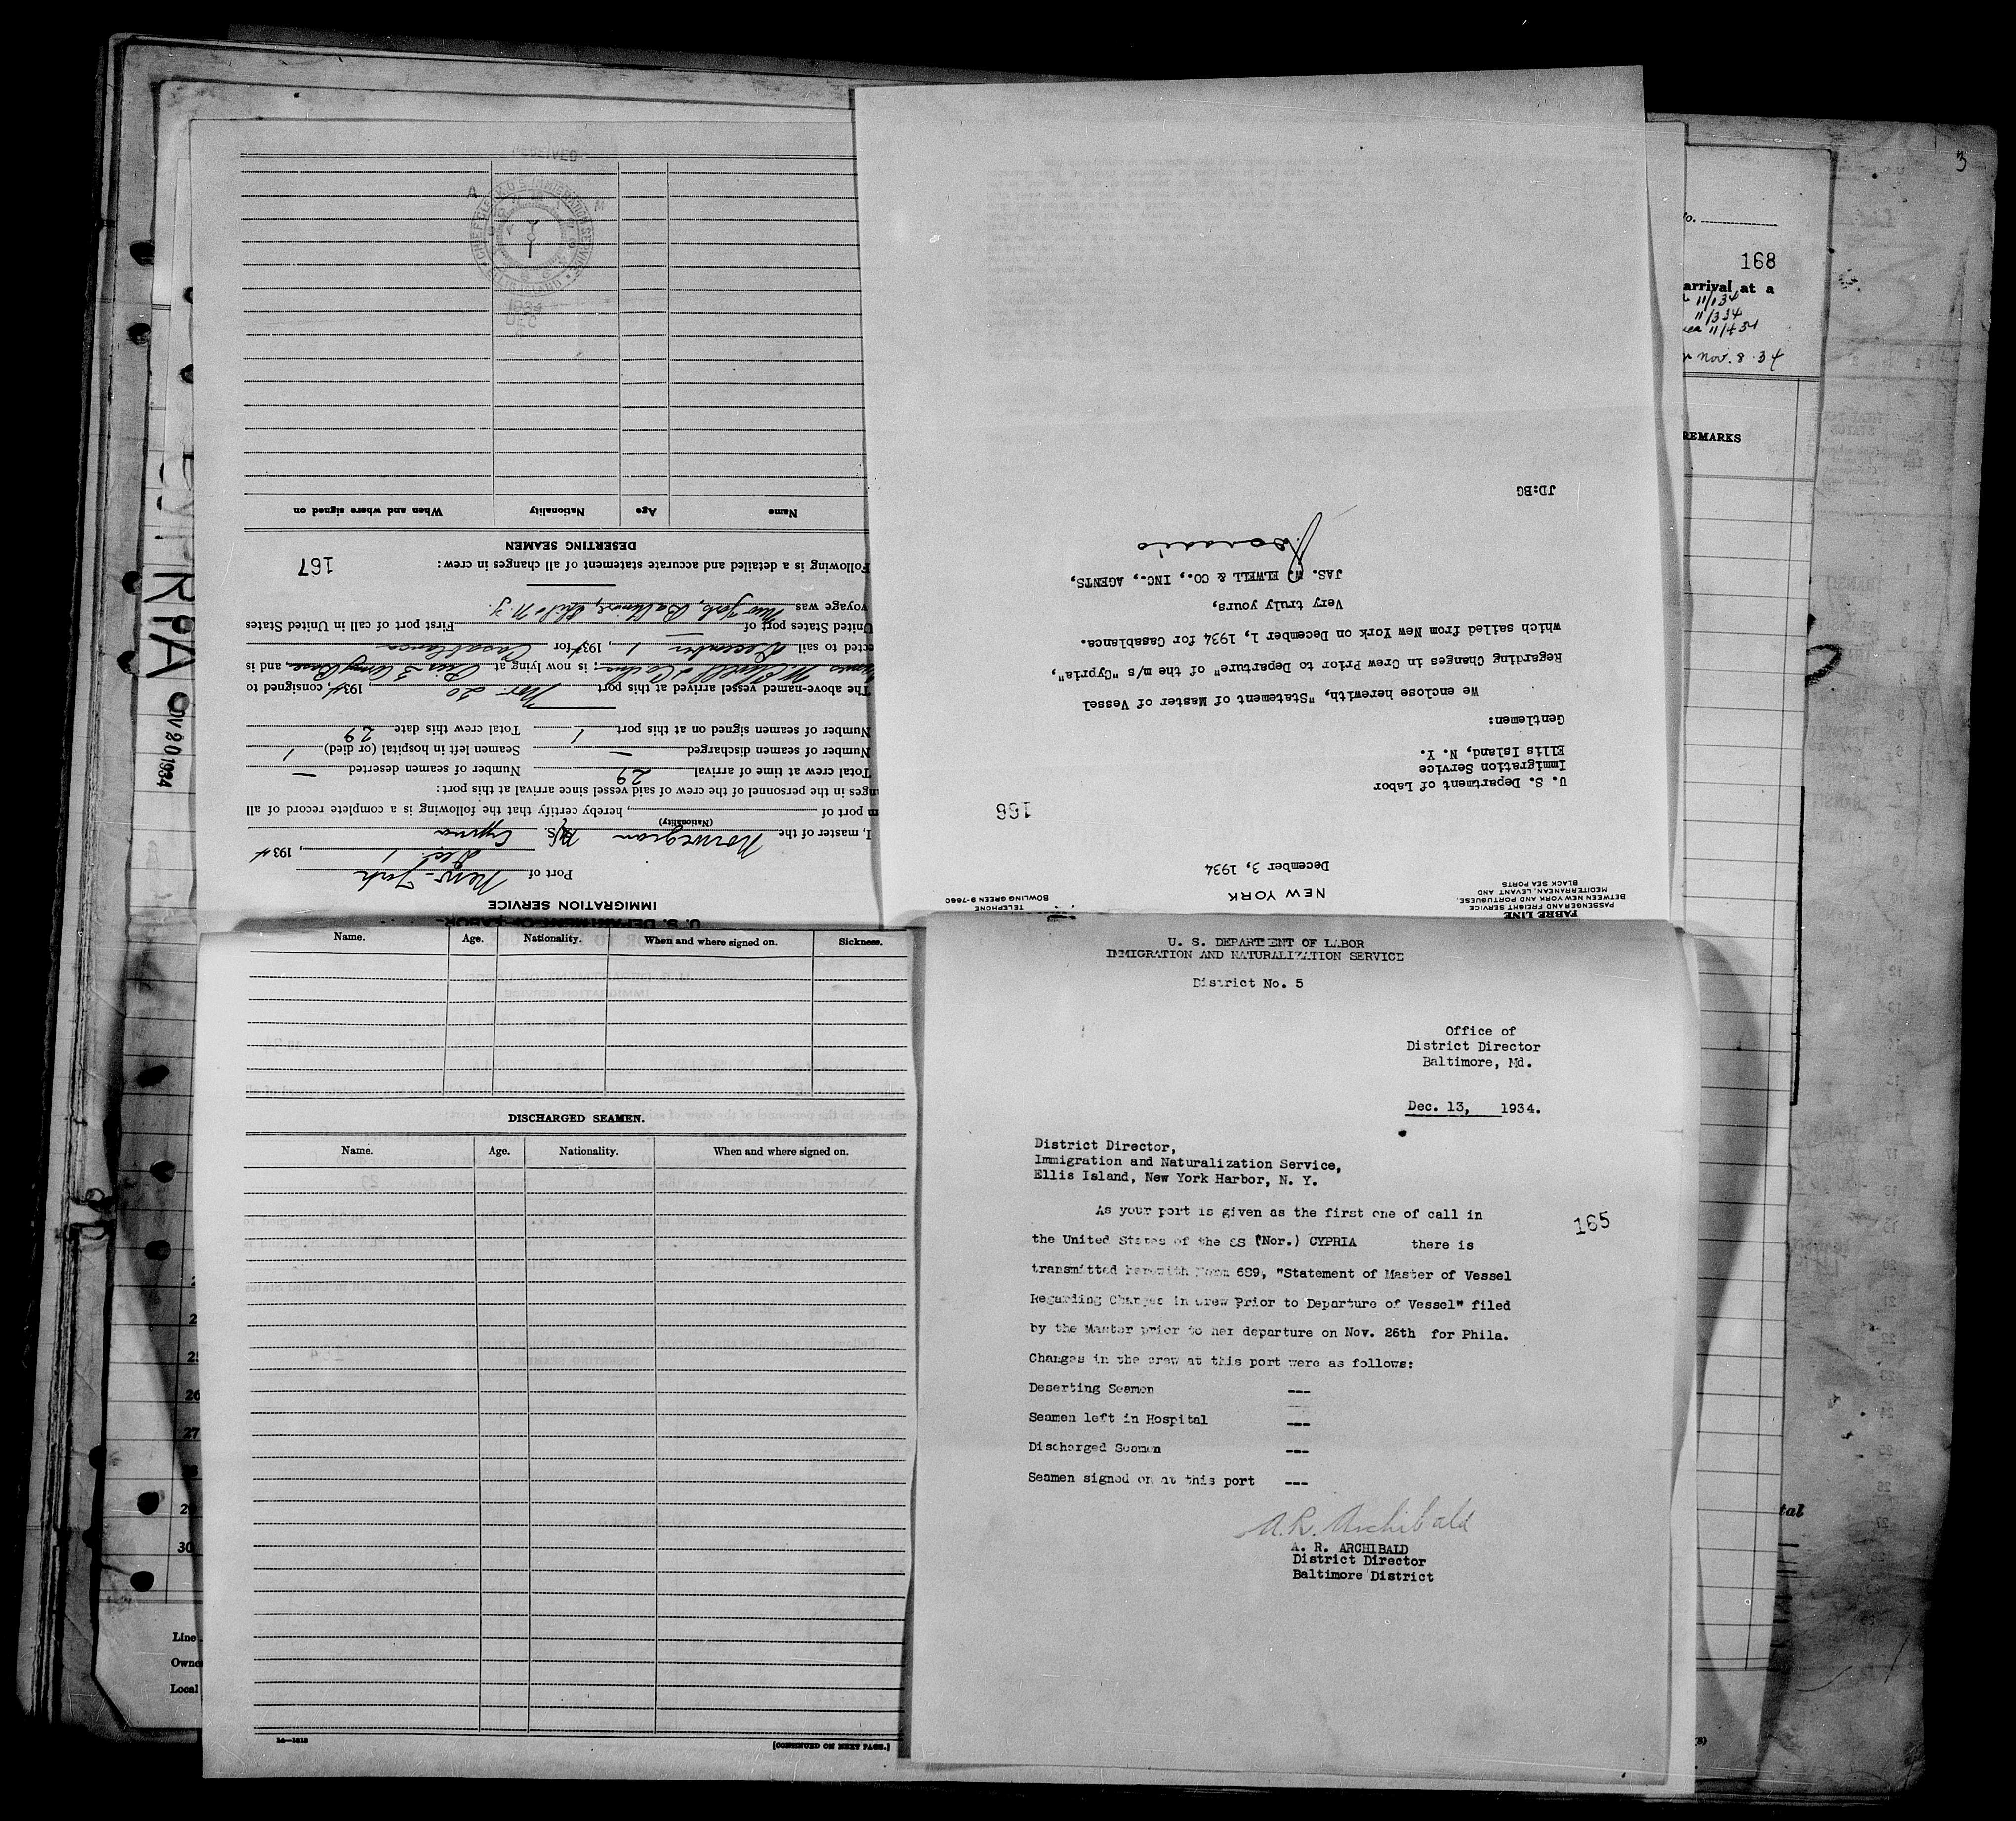 U. S. DEPARTMENT OF LABOR
IMMIGRATION SERVICE
Port of New-York
Dec. 1, 1934
I, master of the Norwegian M/S. Cypria
(Nationality)
port of , hereby certify that the following is a complete record of all
in the personnel of the crew of said vessel since arrival at this port:
Total crew at time of arrival 29 Number of seamen deserted —
Number of seamen discharged — Seamen left in hospital (or died) 1
Number of seamen signed on at this port 1 Total crew this date 29
The above-named vessel arrived at this port Nov. 20, 1934, consigned to
W. Elwell & Co. Inc; is now lying at Pier 3 Army Base, and is
to sail December 1, 1934 for Casablanca
United States port of — First port of call in United States
voyage was New York, Baltimore, Phila N.Y.
Following is a detailed and accurate statement of all changes in crew:
167
DESERTING SEAMEN
Name Age Nationality When and where signed on
RECEIVED
A M
CHIEF CLERK U.S. IMMIGRATION SERVICE
ELLIS ISLAND
1934
DEC
FABRE LINE
PASSENGER AND FREIGHT SERVICE
BETWEEN NEW YORK AND PORTUGUESE,
MEDITERRANEAN, LEVANT AND
BLACK SEA PORTS
NEW YORK
TELEPHONE
BOWLING GREEN 9-7660
December 3, 1934
166
U. S. Department of Labor
Immigration Service
Ellis Island, N. Y.
Gentlemen:
We enclose herewith, "Statement of Master of Vessel
Regarding Changes in Crew Prior to Departure" of the m/s "Cypria",
which sailed from New York on December 1, 1934 for Casablanca.
Very truly yours,
JAS. W. ELWELL & CO., INC., AGENTS,
JD:BG
3
168
arrival at a
11/1 34
11/3 34
11/4 34
Nov. 8. 34
REMARKS
NOV 20 1934
Name. Age. Nationality. When and where signed on. Sickness.
DISCHARGED SEAMEN.
Name. Age. Nationality. When and where signed on.
14—1613
[CONTINUED ON NEXT PAGE.]
U. S. DEPARTMENT OF LABOR
IMMIGRATION AND NATURALIZATION SERVICE
District No. 5
Office of
District Director
Baltimore, Md.
Dec. 13, 1934.
District Director,
Immigration and Naturalization Service,
Ellis Island, New York Harbor, N. Y.
165
As your port is given as the first one of call in
the United States of the SS (Nor.) CYPRIA there is
transmitted herewith Form 689, "Statement of Master of Vessel
Regarding Changes in Crew Prior to Departure of Vessel" filed
by the Master prior to her departure on Nov. 26th for Phila.
Changes in the crew at this port were as follows:
Deserting Seamen ---
Seamen left in Hospital ---
Discharged Seamen ---
Seamen signed on at this port ---
A. R. Archibald
A. R. ARCHIBALD
District Director
Baltimore District
26
27
29
30
Line
Owne
Local